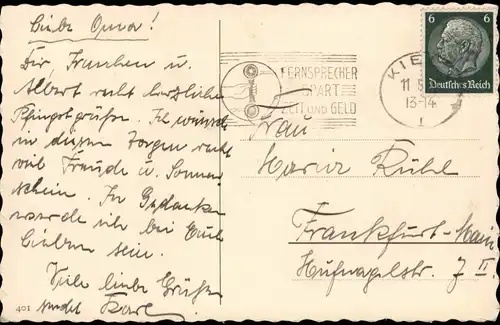 Liebe Oma!
Dir, Franken u.
Albert recht herzliche
Pfingstgrüße. Ich wünsche
in diesen Tagen recht
viel Freude u. Sonnen
schein. In Gedanken
werde ich bei Euch
Lieben sein.
Viele liebe Grüße
sendet Karl
401
FERNSPRECHER
SPART
ZEIT UND GELD
KIE
11 5
13-14
1
6 6
Deutsches Reich
Frau
Maria Rühl
Frankfurt-Main
Hufnagelstr. 7 II.